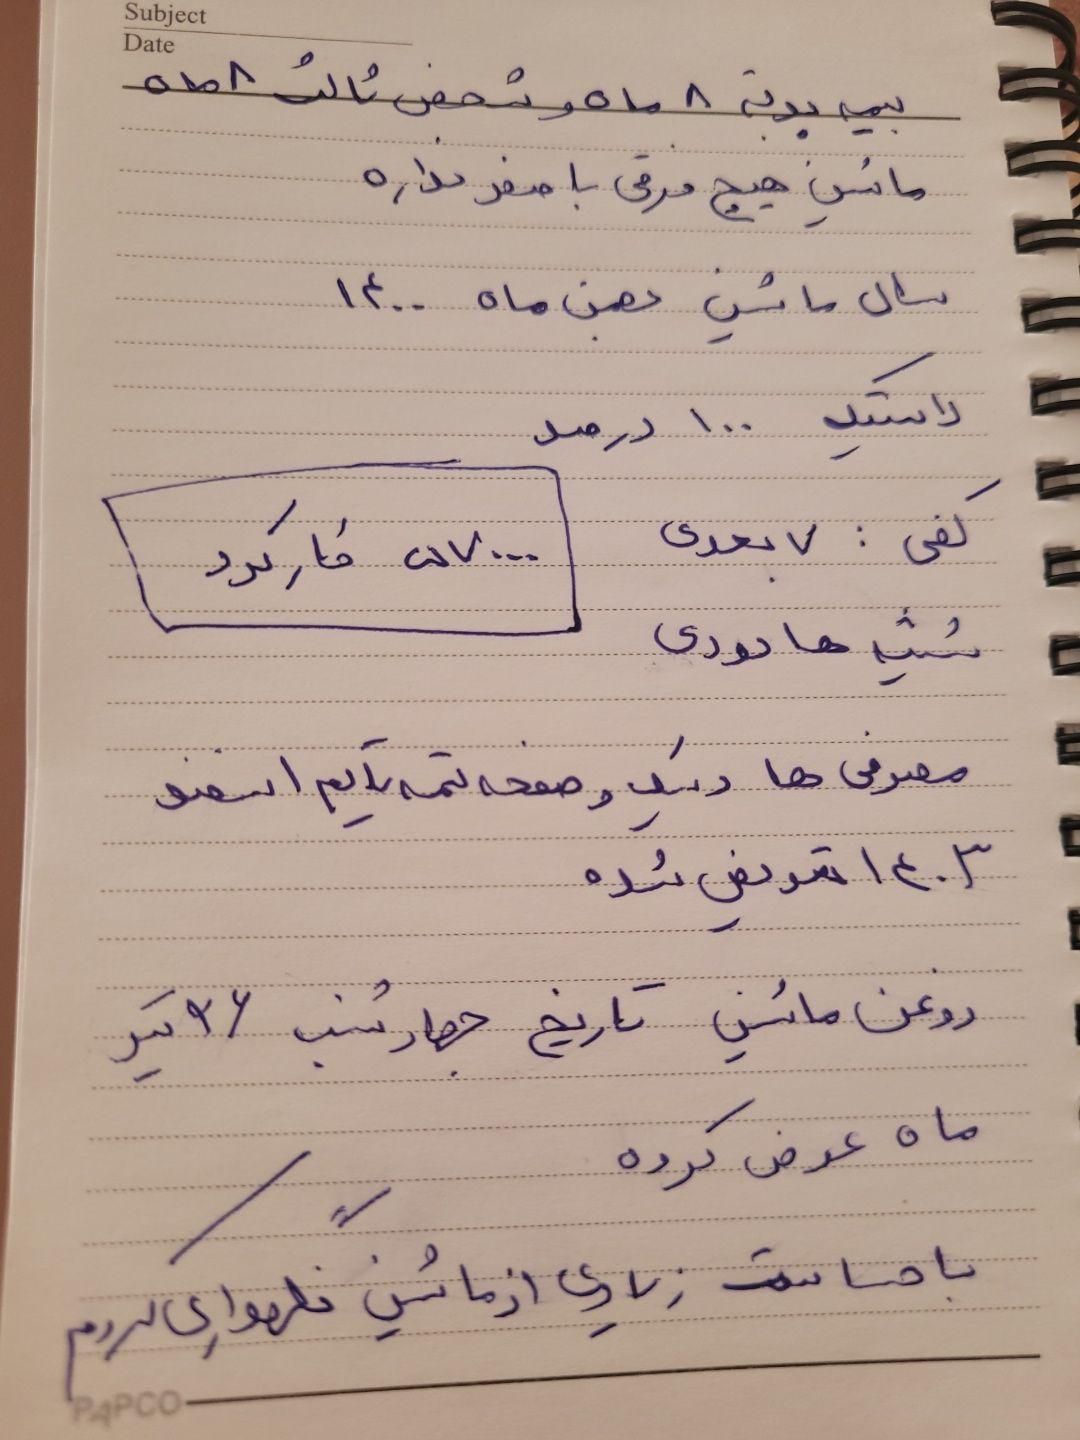 Subject
Date
بیمه بدنه ۸ ماه و شخص ثالث ۸ ماه
ماشین هیچ فرقی با صفر نداره
سال ماشین بهمن ماه ۱۴۰۰
لاستیک ۱۰۰ درصد
کفی : ۷ بعدی
۵۷۰۰۰ کارکرد
شیشه ها دودی
مصرفی ها دیسک و صفحه تسمه تایم اسفند
۱۴۰۳ تعویض شده
روغن ماشین تاریخ چهارشنبه ۲۶ تیر
ماه عوض کرده
با حساسیت زیادی از ماشین نگهداری کردم
PAPCO